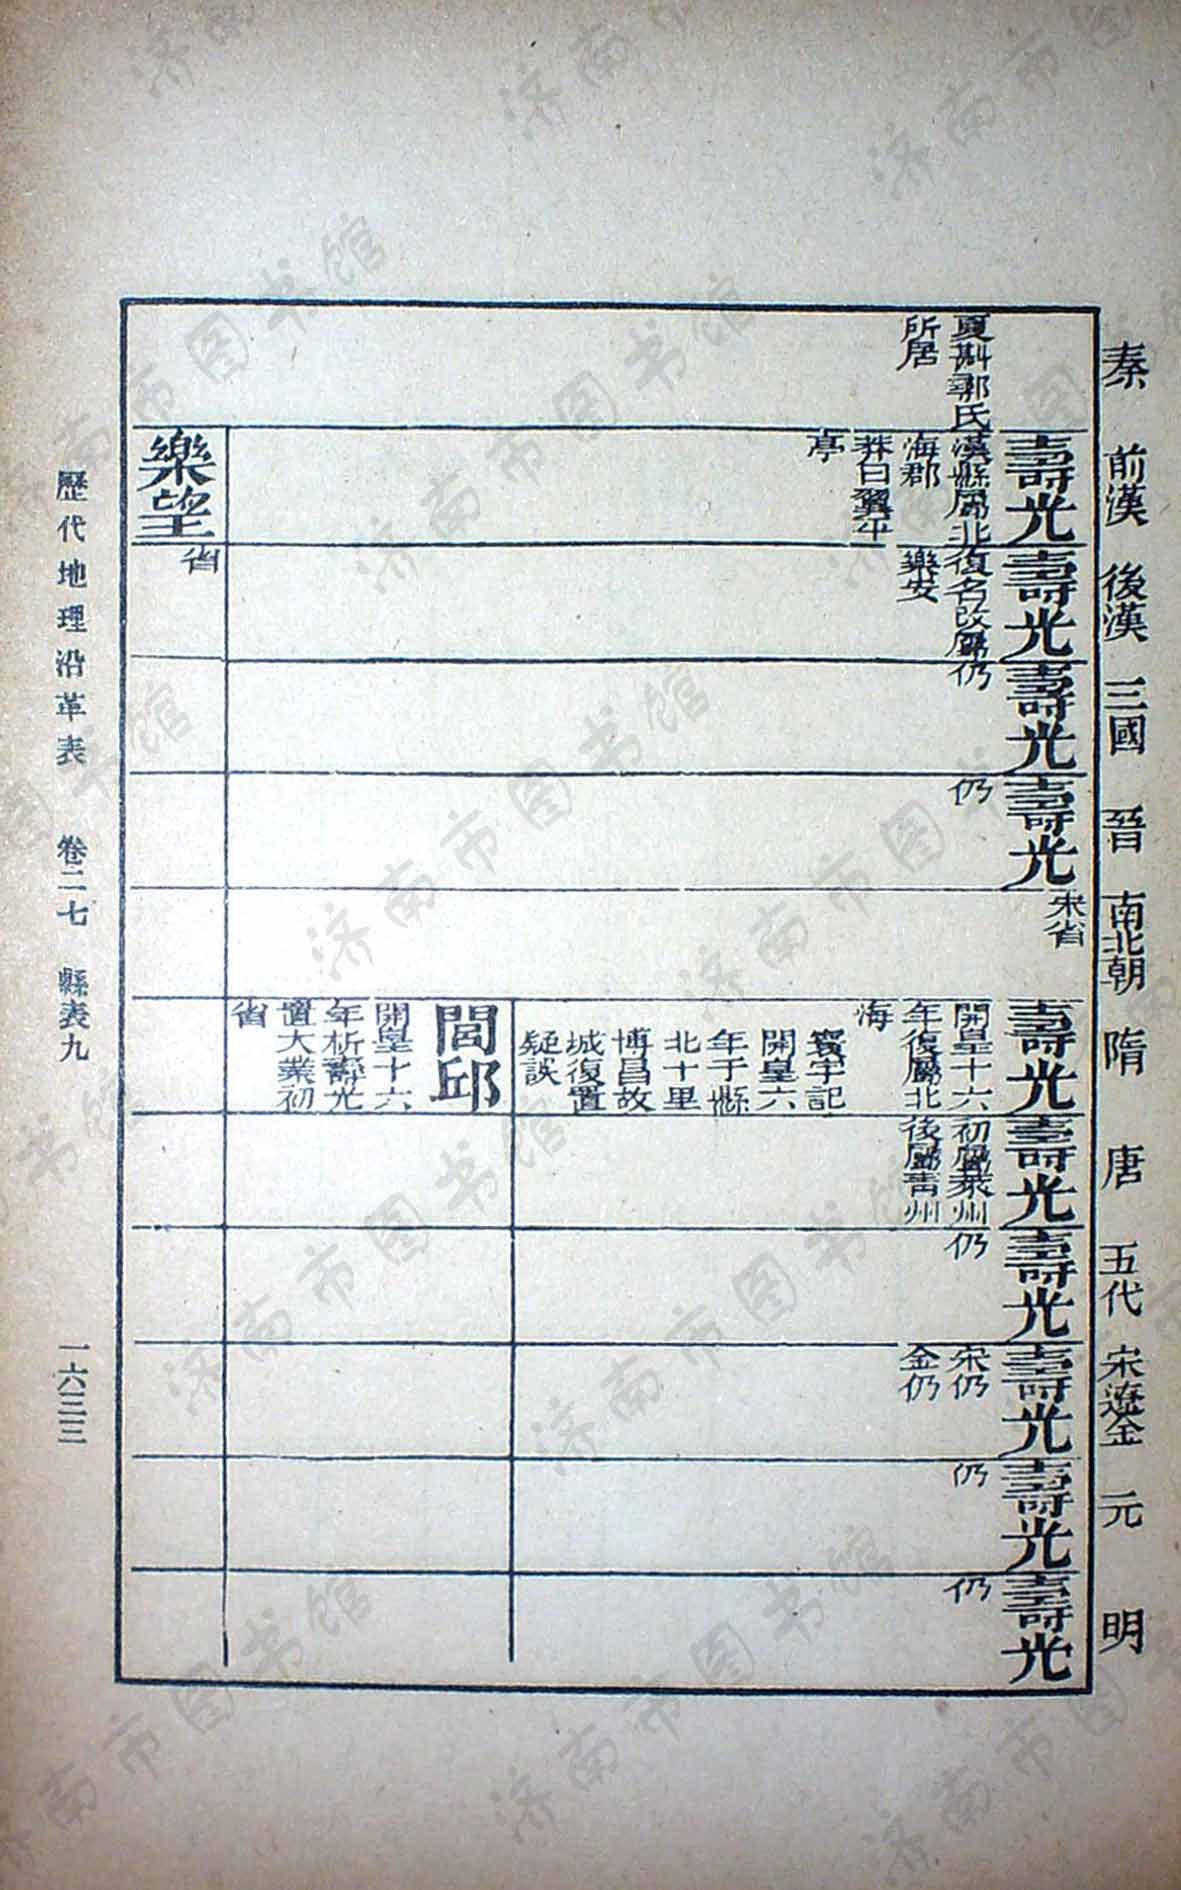 秦　前漢　後漢　三國　晉　南北朝　隋　唐　五代　宋遼金　元　明
夏斟鄩氏
所居
壽光
漢縣屬北
海郡
莽曰翼平
亭
壽光
復名改屬
樂安
壽光
仍
壽光
仍
宋省
壽光
開皇十六
年復屬北
海
寰宇記
開皇六
年于縣
北十里
博昌故
城復置
疑誤
壽光
初屬萊州
後屬青州
壽光
仍
壽光
宋仍
金仍
壽光
仍
壽光
仍
閭邱
開皇十六
年析壽光
置大業初
省
樂望
省
歷代地理沿革表　卷二七　縣表九　一六三三
济南市图书馆